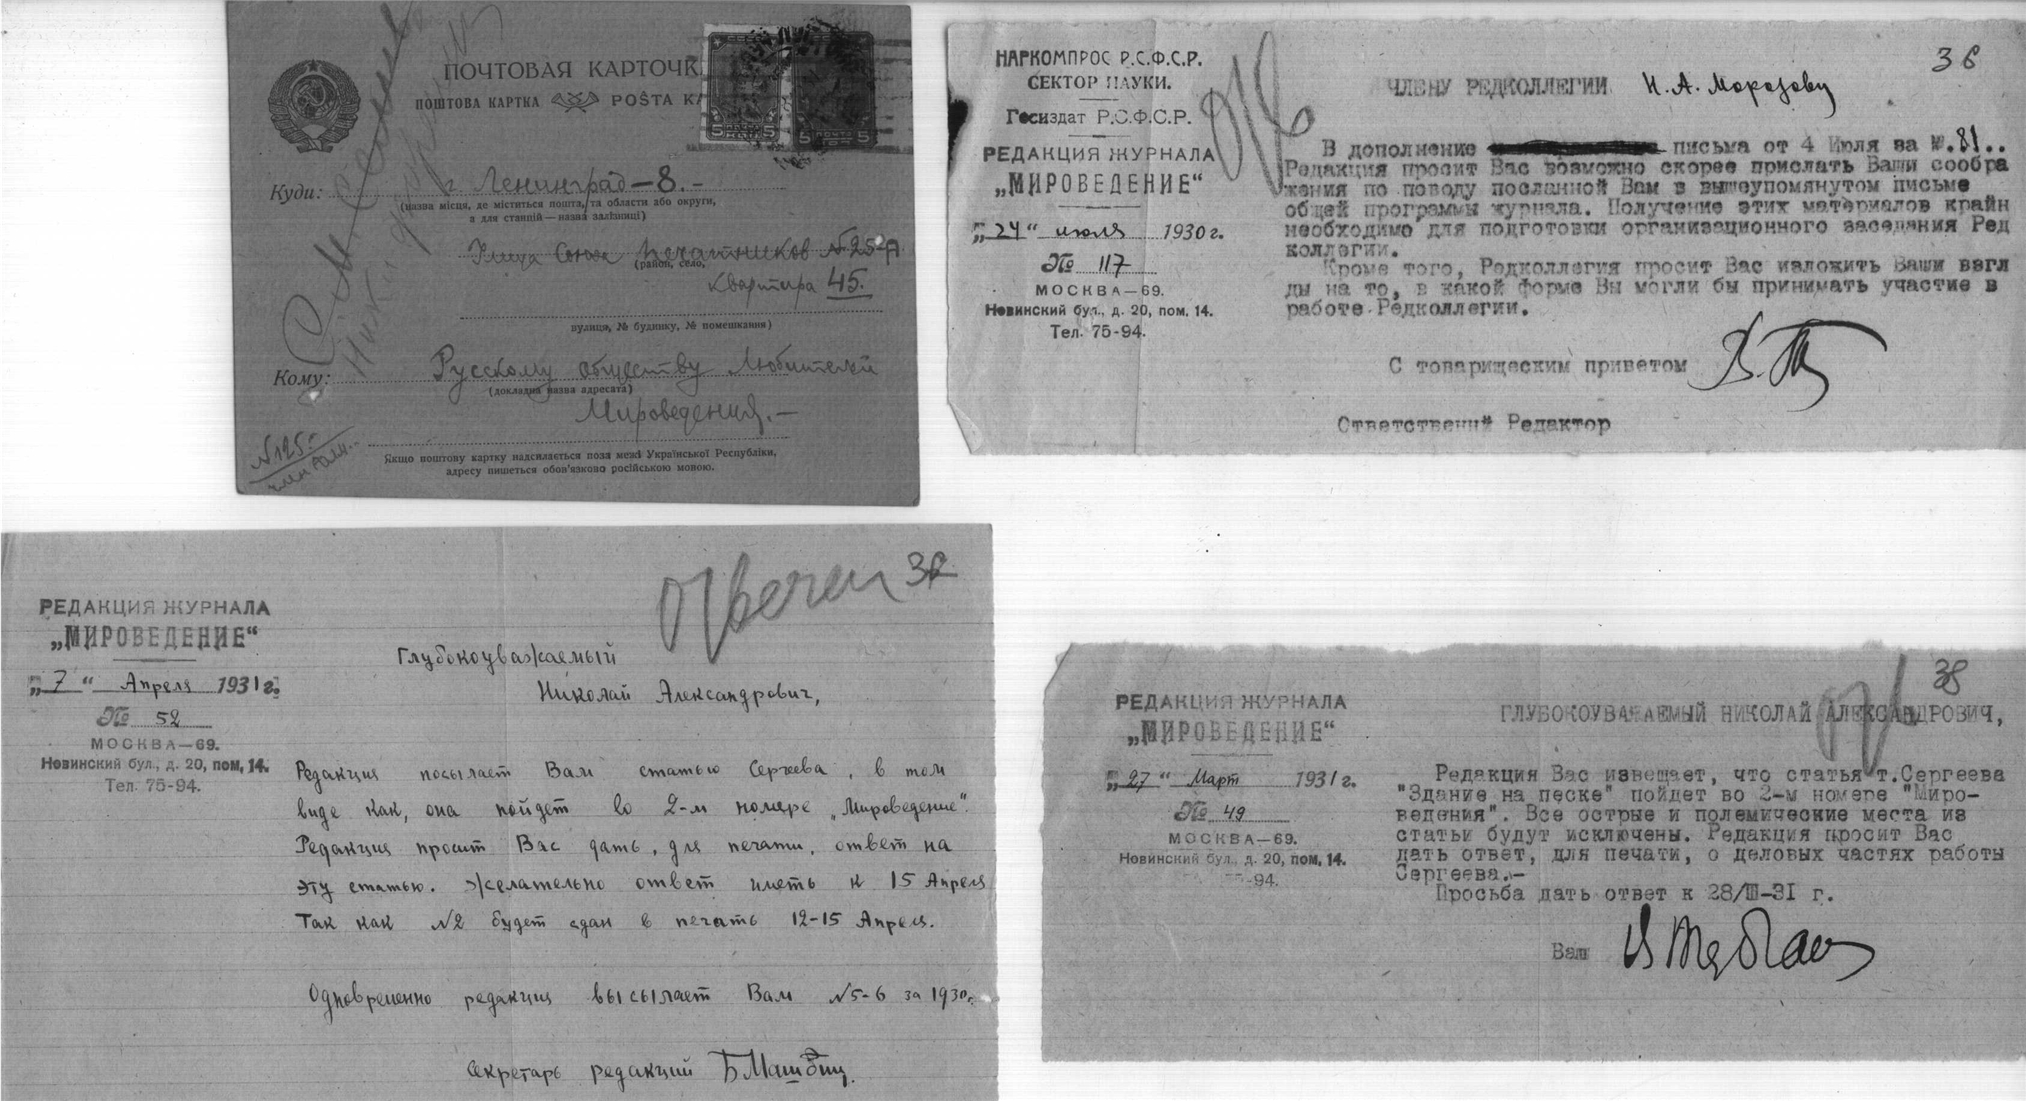 ПОЧТОВАЯ КАРТОЧК
ПОШТОВА КАРТКА POŜTA KA
5 5 5 5
Куди: г. Ленинград – 8. –
(назва місця, де міститься пошта, та области або округи,
а для станцій — назва залізниці)
Улица Союза Печатников № 25
(район, село,
Квартира 45.
вулиця, № будинку, № помешкання)
Кому: Русскому обществу Любителей
(докладна назва адресата)
Мироведения. –
№125.
Якщо поштову картку надсилається поза межі Української Республіки,
адресу пишеться обов'язково російською мовою.
НАРКОМПРОС Р.С.Ф.С.Р.
СЕКТОР НАУКИ.
Госиздат Р.С.Ф.С.Р.
РЕДАКЦИЯ ЖУРНАЛА
„МИРОВЕДЕНИЕ"
„24" июля 1930 г.
№ 117
МОСКВА—69.
Новинский бул., д. 20, пом. 14.
Тел. 75-94.
36
ЧЛЕНУ РЕДКОЛЛЕГИИ Н. А. Морозову
В дополнение письма от 4 Июля за №.81..
Редакция просит Вас возможно скорее прислать Ваши сообра
жения по поводу посланной Вам в вышеупомянутом письме
общей программы журнала. Получение этих материалов крайн
необходимо для подготовки организационного заседания Ред
коллегии.
Кроме того, Редколлегия просит Вас изложить Ваши взгл
ды на то, в какой форме Вы могли бы принимать участие в
работе Редколлегии.
С товарищеским приветом
Ответственый Редактор
РЕДАКЦИЯ ЖУРНАЛА
„МИРОВЕДЕНИЕ"
„7" Апреля 1931 г.
№ 52
МОСКВА—69.
Новинский бул., д. 20, пом. 14.
Тел. 75-94.
Отвечен
Глубокоуважаемый
Николай Александрович,
Редакция посылает Вам статью Сергеева, в том
виде как, она пойдет во 2-м номере „Мироведение".
Редакция просит Вас дать, для печати, ответ на
эту статью. Желательно ответ иметь к 15 Апреля
Так как №2 будет сдан в печать 12-15 Апреля.
Одновременно редакция высылает Вам №5-6 за 1930 г.
Секретарь редакций
РЕДАКЦИЯ ЖУРНАЛА
„МИРОВЕДЕНИЕ"
„27" Март 1931 г.
№ 49
МОСКВА—69.
Новинский бул., д. 20, пом. 14.
-94.
38
ГЛУБОКОУВАЖАЕМЫЙ НИКОЛАЙ АЛЕКСАНДРОВИЧ,
Редакция Вас извещает, что статья т.Сергеева
"Здание на песке" пойдет во 2-м номере "Миро-
ведения". Все острые и полемические места из
статьи будут исключены. Редакция просит Вас
дать ответ, для печати, о деловых частях работы
Сергеева.-
Просьба дать ответ к 28/III-31 г.
Ваш